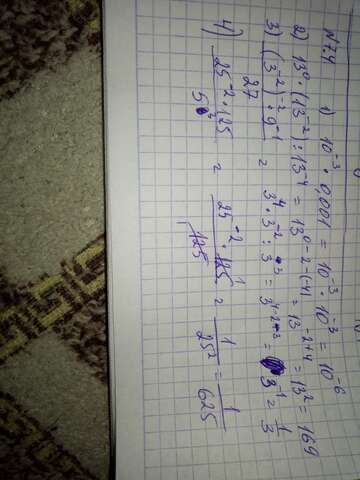 N7.4 1) 10⁻³ · 0,001 = 10⁻³ · 10⁻³ = 10⁻⁶
2) 13⁰ · (13⁻²) : 13⁻⁴ = 13⁰⁻²⁻⁽⁻⁴⁾ = 13⁻²⁺⁴ = 13² = 169
3) (3⁻²)⁻² · 9⁻¹ / 27 = 3⁴ · 3⁻² : 3³ = 3⁴⁻²⁻³ = 3¹ = 1/3
4) 25⁻² · 125 / 5³ = 25⁻² · 125 / 125 = 1 / 25² = 1 / 625